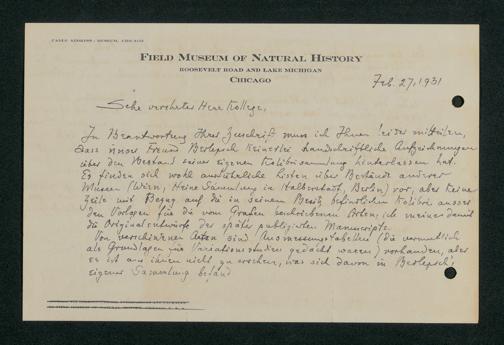 CABLE ADDRESS: MUSEUM, CHICAGO
FIELD MUSEUM OF NATURAL HISTORY
ROOSEVELT ROAD AND LAKE MICHIGAN
CHICAGO
Feb. 27, 1931
Sehr verehrter Herr Kollege,
In Beantwortung Ihrer Zuschrift muss ich Ihnen leider mitteilen,
dass unser Freund Berlepsch keinerlei handschriftliche Aufzeichnungen
über den Bestand seiner eigenen Kolibrisammlung hinterlassen hat.
Es finden sich wohl ausführliche Listen über Bestände anderer
Museen (Wien, Heine Sammlung in Halberstadt, Berlin) vor, aber keine
Zeile mit Bezug auf die in seinem Besitz befindlichen Kolibri ausser
den Vorlagen für die vom Grafen beschriebenen Arten, ich meine damit
die Originalentwürfe der später publizierten Manuscripte.
Von verschiedenen Arten sind Ausmessungstabellen (die vermutlich
als Grundlagen für Variationsstudien gedacht waren) vorhanden, aber
es ist aus ihnen nicht zu ersehen, was sich davon in Berlepsch's
eigener Sammlung befand